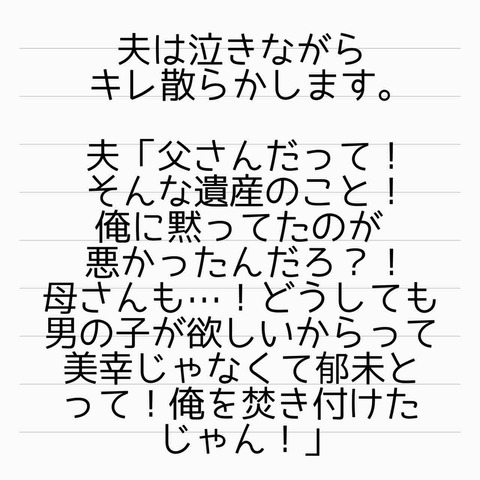 夫は泣きながら
キレ散らかします。
夫「父さんだって！
そんな遺産のこと！
俺に黙ってたのが
悪かったんだろ？！
母さんも…！どうしても
男の子が欲しいからって
美幸じゃなくて郁未と
って！俺を焚き付けた
じゃん！」